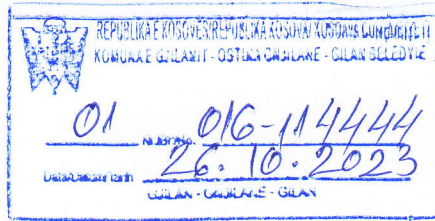 REPUBLIKA E KOSOVËS/REPUBLIKA KOSOVA/
KOMUNA E GJILANIT - OPŠTINA GNJILANE - GILAN BELEDİYE
01 016-114444
Data/Datum/Tarih 26.10.2023
GJILAN - GNJILANE - GILAN